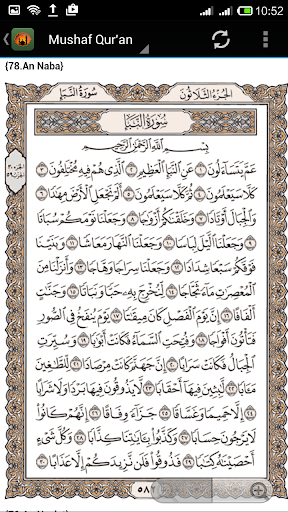 10:52
Mushaf Qur'an
{78.An Naba}
سُورَةُ النَّبَإِ الجُزْءُ الثَّلَاثُونَ
سُورَةُ النَّبَإِ
بِسْمِ ٱللَّهِ ٱلرَّحْمَٰنِ ٱلرَّحِيمِ
عَمَّ يَتَسَآءَلُونَ ١ عَنِ ٱلنَّبَإِ ٱلْعَظِيمِ ٢ ٱلَّذِى هُمْ فِيهِ مُخْتَلِفُونَ ٣
كَلَّا سَيَعْلَمُونَ ٤ ثُمَّ كَلَّا سَيَعْلَمُونَ ٥ أَلَمْ نَجْعَلِ ٱلْأَرْضَ مِهَٰدًا ٦
وَٱلْجِبَالَ أَوْتَادًا ٧ وَخَلَقْنَٰكُمْ أَزْوَٰجًا ٨ وَجَعَلْنَا نَوْمَكُمْ سُبَاتًا
٩ وَجَعَلْنَا ٱلَّيْلَ لِبَاسًا ١٠ وَجَعَلْنَا ٱلنَّهَارَ مَعَاشًا ١١ وَبَنَيْنَا
فَوْقَكُمْ سَبْعًا شِدَادًا ١٢ وَجَعَلْنَا سِرَاجًا وَهَّاجًا ١٣ وَأَنزَلْنَا مِنَ
ٱلْمُعْصِرَٰتِ مَآءً ثَجَّاجًا ١٤ لِّنُخْرِجَ بِهِۦ حَبًّا وَنَبَاتًا ١٥ وَجَنَّٰتٍ
أَلْفَافًا ١٦ إِنَّ يَوْمَ ٱلْفَصْلِ كَانَ مِيقَٰتًا ١٧ يَوْمَ يُنفَخُ فِى ٱلصُّورِ
فَتَأْتُونَ أَفْوَاجًا ١٨ وَفُتِحَتِ ٱلسَّمَآءُ فَكَانَتْ أَبْوَٰبًا ١٩ وَسُيِّرَتِ
ٱلْجِبَالُ فَكَانَتْ سَرَابًا ٢٠ إِنَّ جَهَنَّمَ كَانَتْ مِرْصَادًا ٢١ لِّلطَّٰغِينَ
مَـَٔابًا ٢٢ لَّٰبِثِينَ فِيهَآ أَحْقَابًا ٢٣ لَّا يَذُوقُونَ فِيهَا بَرْدًا وَلَا شَرَابًا
٢٤ إِلَّا حَمِيمًا وَغَسَّاقًا ٢٥ جَزَآءً وِفَاقًا ٢٦ إِنَّهُمْ كَانُوا۟
لَا يَرْجُونَ حِسَابًا ٢٧ وَكَذَّبُوا۟ بِـَٔايَٰتِنَا كِذَّابًا ٢٨ وَكُلَّ شَىْءٍ
أَحْصَيْنَٰهُ كِتَٰبًا ٢٩ فَذُوقُوا۟ فَلَن نَّزِيدَكُمْ إِلَّا عَذَابًا ٣٠